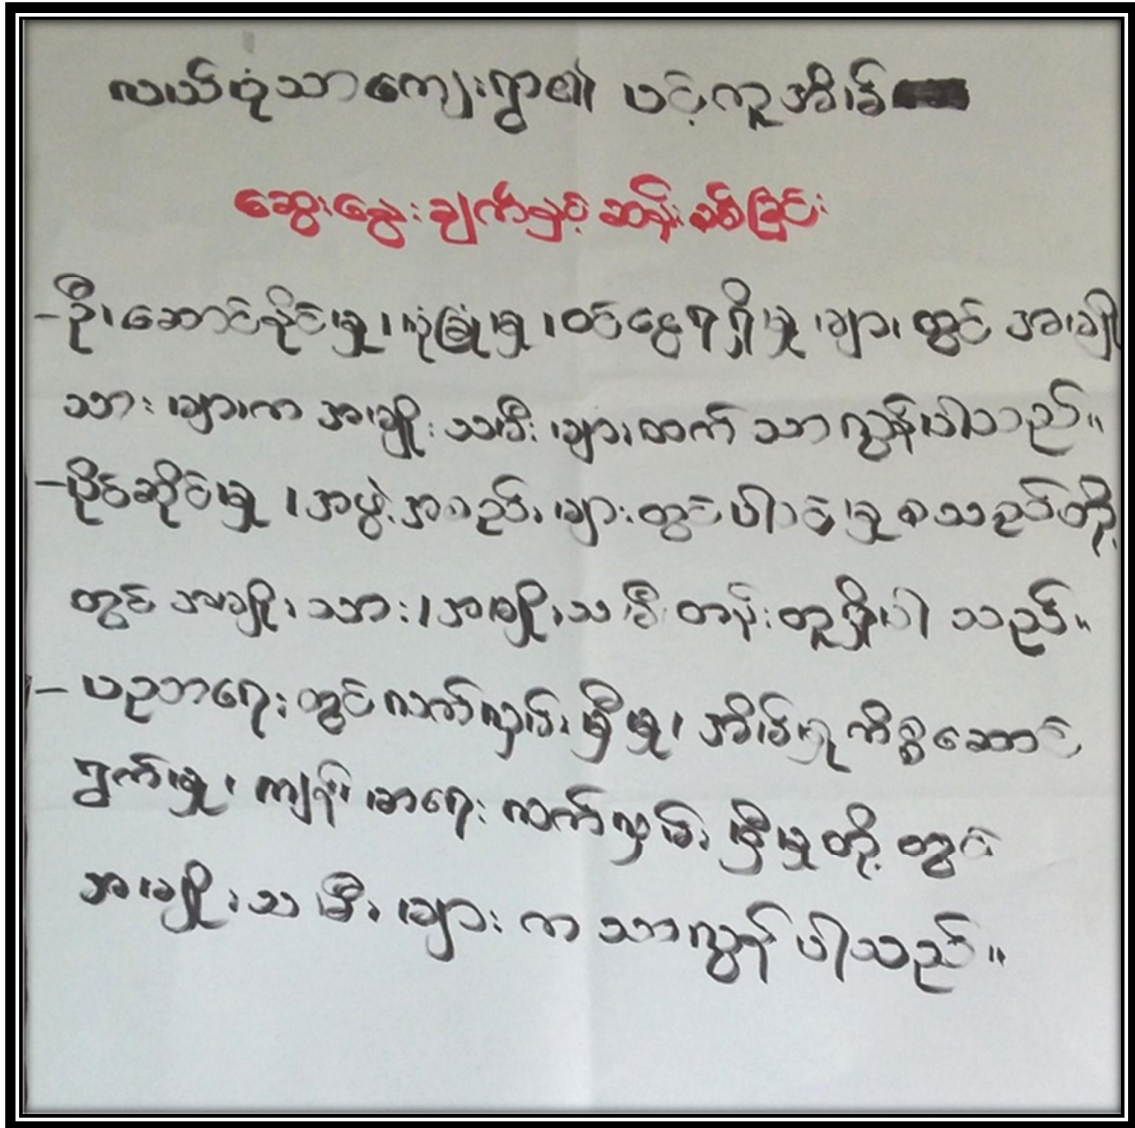 လယ်ပုံသာကျေးရွာ၏ ပင့်ကူအိမ်
ဆွေးနွေးချက်နှင့် ဆန်းစစ်ခြင်း
- ဦးဆောင်နိုင်မှု၊ ယုံကြည်မှု၊ ဝင်ငွေရရှိမှု များ တွင် အမျိုး
သား များက အမျိုး သမီး များထက် သာလွန်ပါသည်။
- ပိုင်ဆိုင်မှု၊ အဖွဲ့အစည်း များတွင် ပါဝင်မှု စသည်တို့
တွင် အမျိုးသား၊ အမျိုးသမီး တန်းတူရှိပါ သည်။
- ပညာရေးတွင် လက်လှမ်းမှီမှု၊ အိမ်မှုကိစ္စဆောင်
ရွက်မှု၊ ကျန်းမာရေး လက်လှမ်းမှီမှုတို့ တွင်
အမျိုးသမီး များ က သာလွန် ပါသည်။